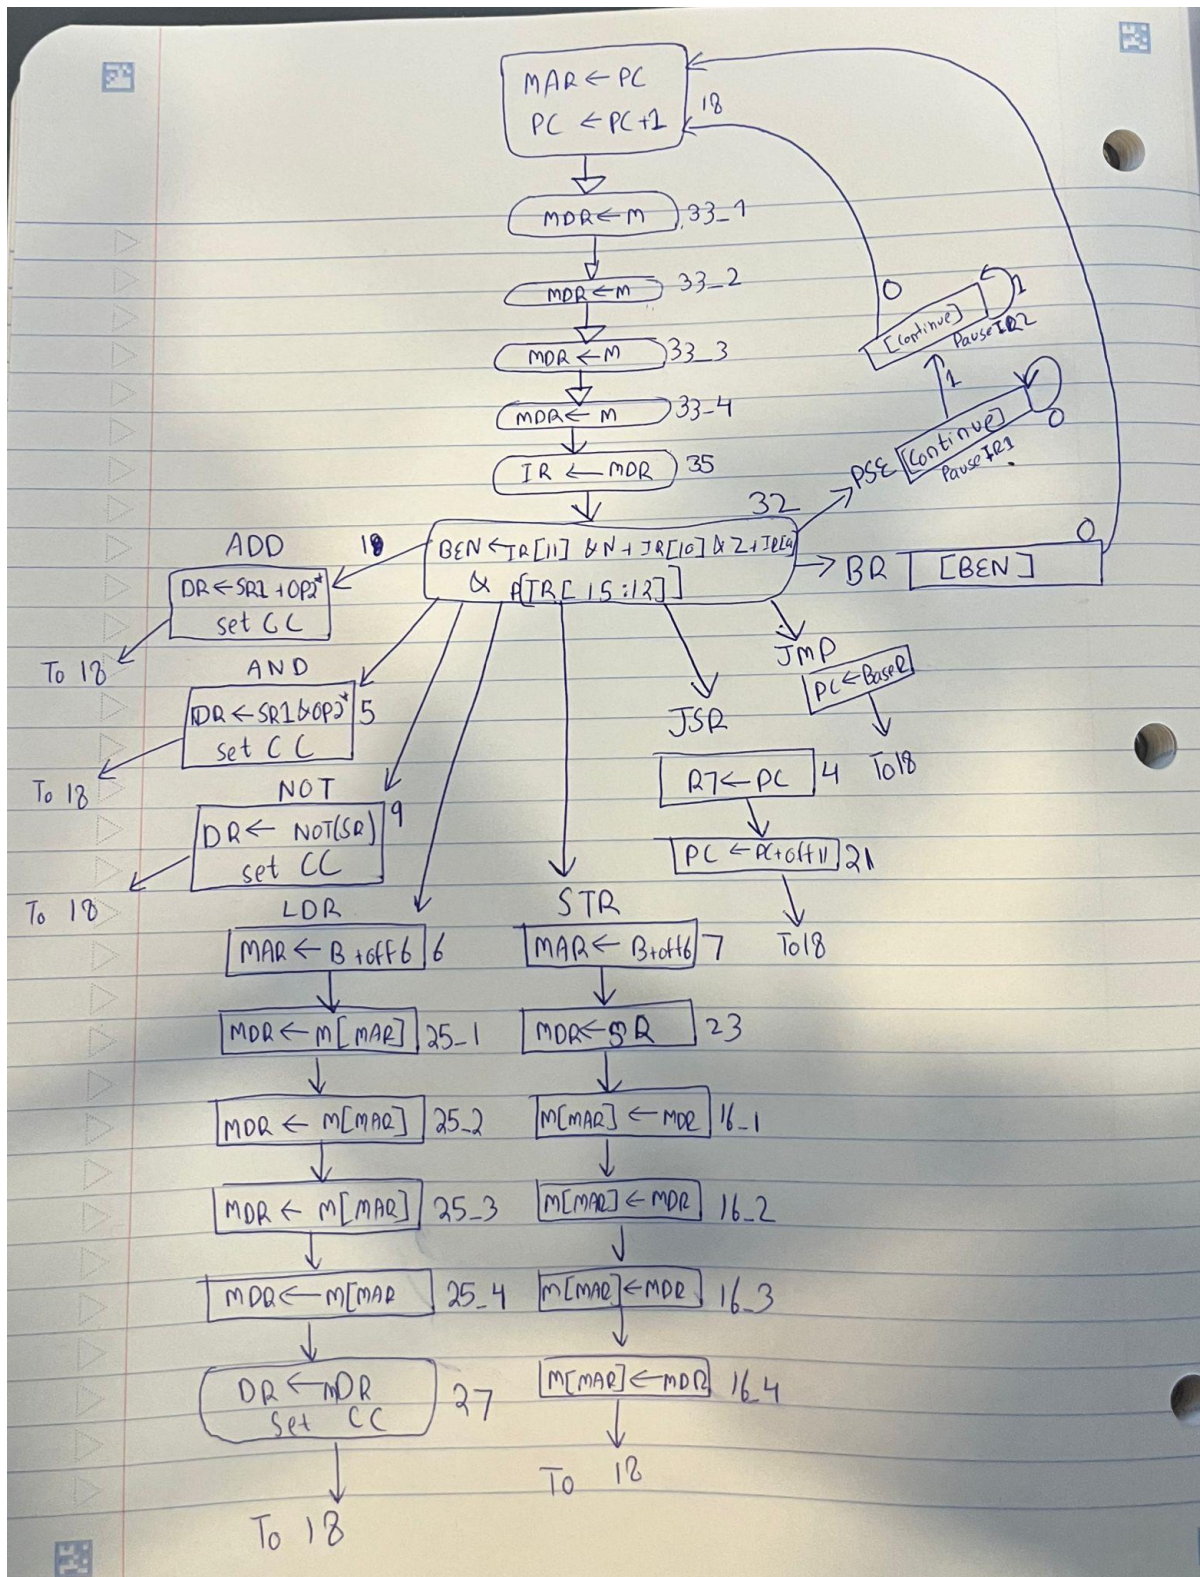 MAR ← PC
PC ← PC+1
18
MDR ← M
33_1
MDR ← M
33_2
MDR ← M
33_3
MDR ← M
33_4
IR ← MDR
35
32
BEN ← IR[11] & N + IR[10] & Z + IR[9]
&
[IR[15:12]]
PSE
[Continue]
PauseIR1
0
1
[Continue]
PauseIR2
1
0
BR
[BEN]
0
ADD
DR ← SR1 + OP2*
set CC
To 18
AND
DR ← SR1 & OP2*
set CC
5
To 18
NOT
DR ← NOT(SR)
set CC
9
To 18
JMP
PC ← BaseR
To 18
JSR
R7 ← PC
4
PC ← PC+off11
21
To 18
LDR
MAR ← B + off6
6
MDR ← M[MAR]
25_1
MDR ← M[MAR]
25_2
MDR ← M[MAR]
25_3
MDR ← M[MAR
25_4
DR ← MDR
Set CC
27
To 18
STR
MAR ← B+off6
7
MDR ← SR
23
M[MAR] ← MDR
16_1
M[MAR] ← MDR
16_2
M[MAR] ← MDR
16_3
M[MAR] ← MDR
16_4
To 18